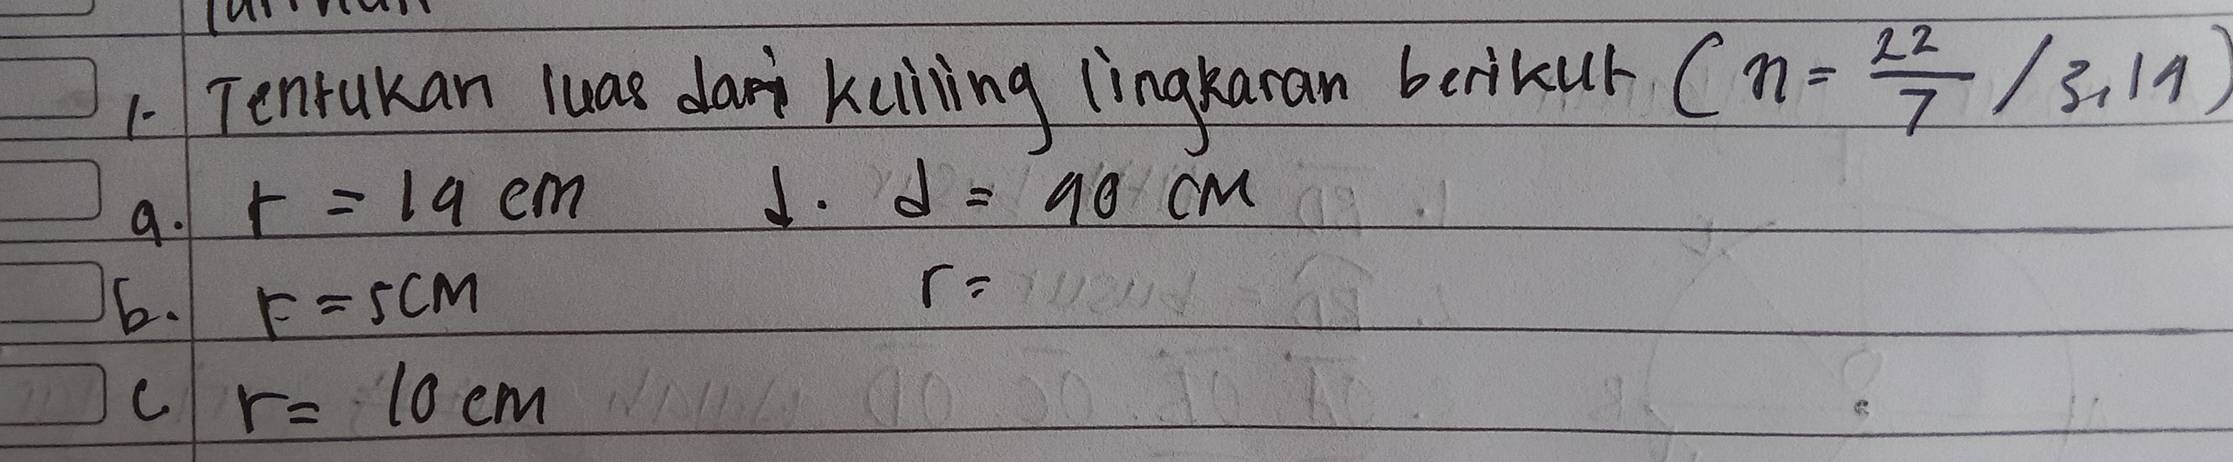 1. Tentukan luas dari keliling lingkaran berikut (π = 22/7 / 3,14)
a. r = 14 cm d. d = 40 cm
b. r = 5 cm r =
c. r = 10 cm